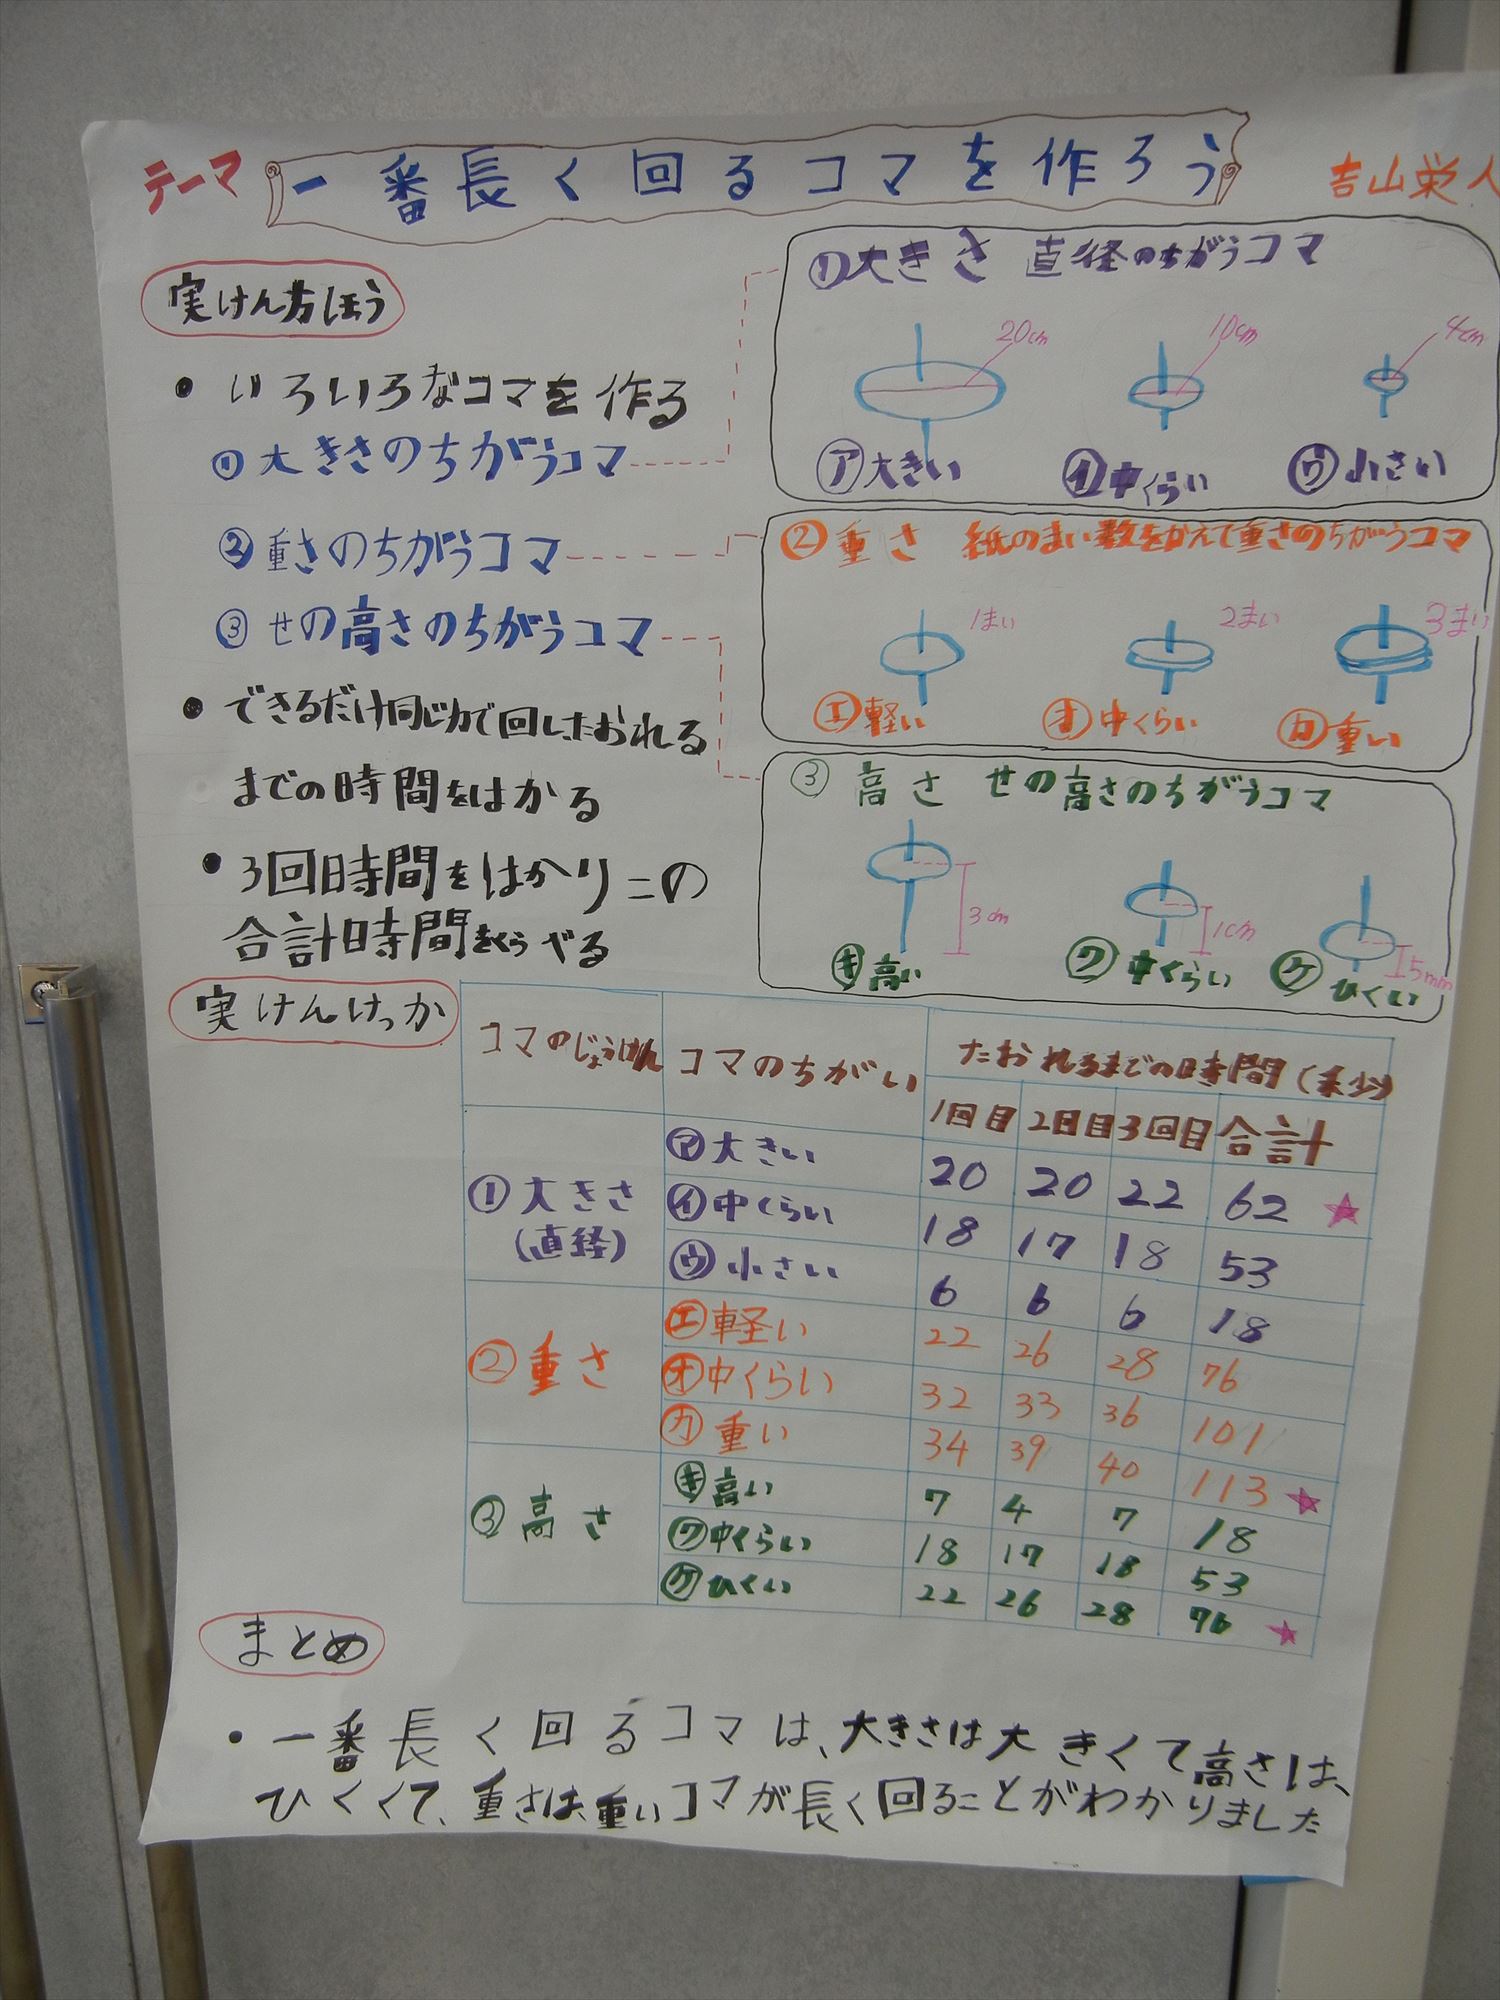 テーマ 一番長く回るコマを作ろう 吉山栄人
実けん方ほう
• いろいろなコマを作る
①大きさのちがうコマ
②重さのちがうコマ
③せの高さのちがうコマ
• できるだけ同じ力で回し、たおれる
までの時間をはかる
• 3回時間をはかりこの
合計時間をくらべる
①大きさ 直径のちがうコマ
20cm 10cm 4cm
㋐大きい ㋑中くらい ㋒小さい
②重さ 紙のまい数をかえて重さのちがうコマ
1まい 2まい 3まい
㋓軽い ㋔中くらい ㋕重い
③高さ せの高さのちがうコマ
3cm 1cm 5mm
㋖高い ㋗中くらい ㋘ひくい
実けんけっか
コマのじょうけん コマのちがい たおれるまでの時間(秒)
1回目 2回目 3回目 合計
①大きさ
(直径)
㋐大きい 20 20 22 62 ★
㋑中くらい 18 17 18 53
㋒小さい 6 6 6 18
②重さ
㋓軽い 22 26 28 76
㋔中くらい 32 33 36 101
㋕重い 34 39 40 113 ★
③高さ
㋖高い 7 4 7 18
㋗中くらい 18 17 18 53
㋘ひくい 22 26 28 76 ★
まとめ
• 一番長く回るコマは、大きさは大きくて高さは、
ひくくて、重さは、重いコマが長く回ることがわかりました